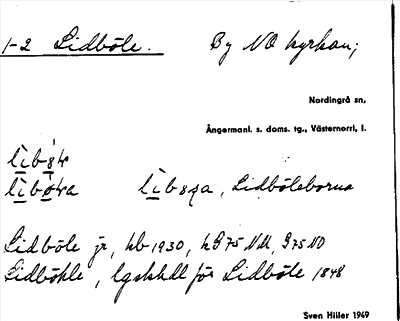 1-2 Lidböle. By NO kyrkan;
Nordingrå sn,
Ångermanl. s. doms. tg., Västernorrl. l.
Lidböleborna
Lidböle jr, kb 1930, kB 75 NV, G 75 NO
Lidböhle, lgskhdl för Lidböle 1848
Sven Hiller 1949